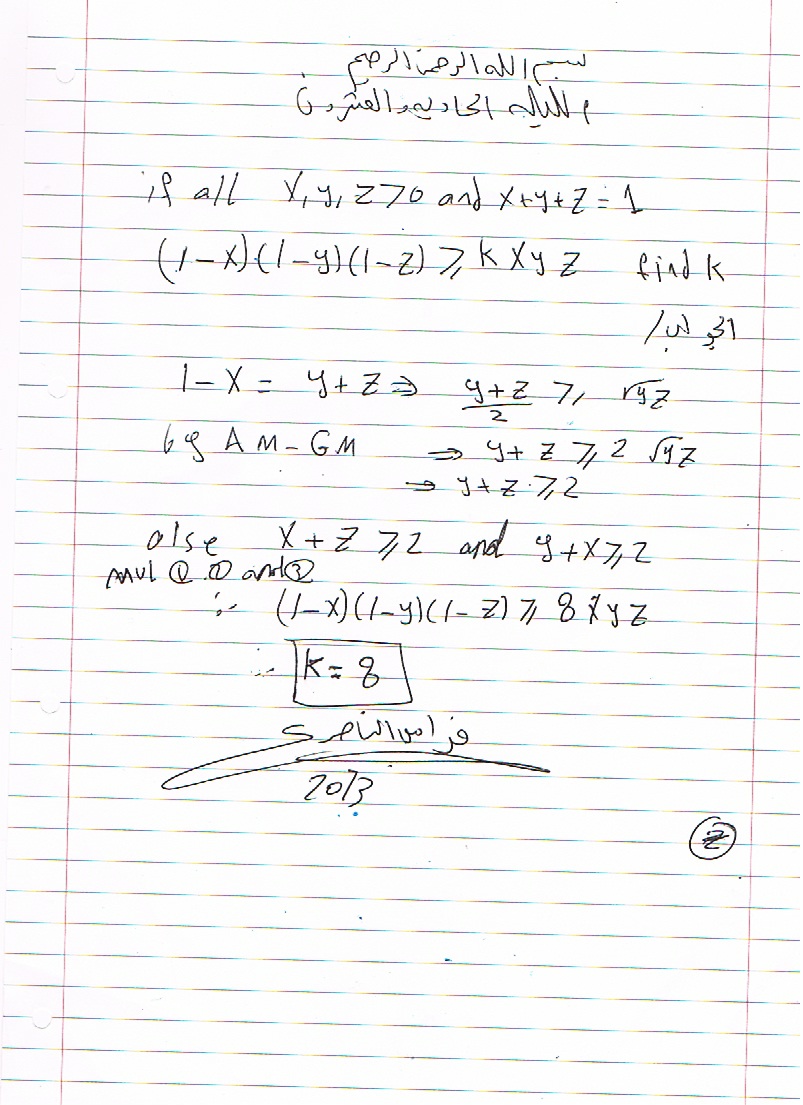 بسم الله الرحمن الرحيم
الليله الحاديه والعشرون
if all x, y, z > 0 and x+y+z = 1
(1-x)(1-y)(1-z) ⩾ k x y z find k
الجواب/
1-x = y+z ⇒ y+z/2 ⩾ √yz
by AM-GM ⇒ y+z ⩾ 2 √yz
→ y+z ⩾ 2
olse x+z ⩾ 2 and y+x ⩾ 2
mul ① ② and ③
∴ (1-x)(1-y)(1-z) ⩾ 8 x y z
∴ k = 8
فراس الناصري
2013
2